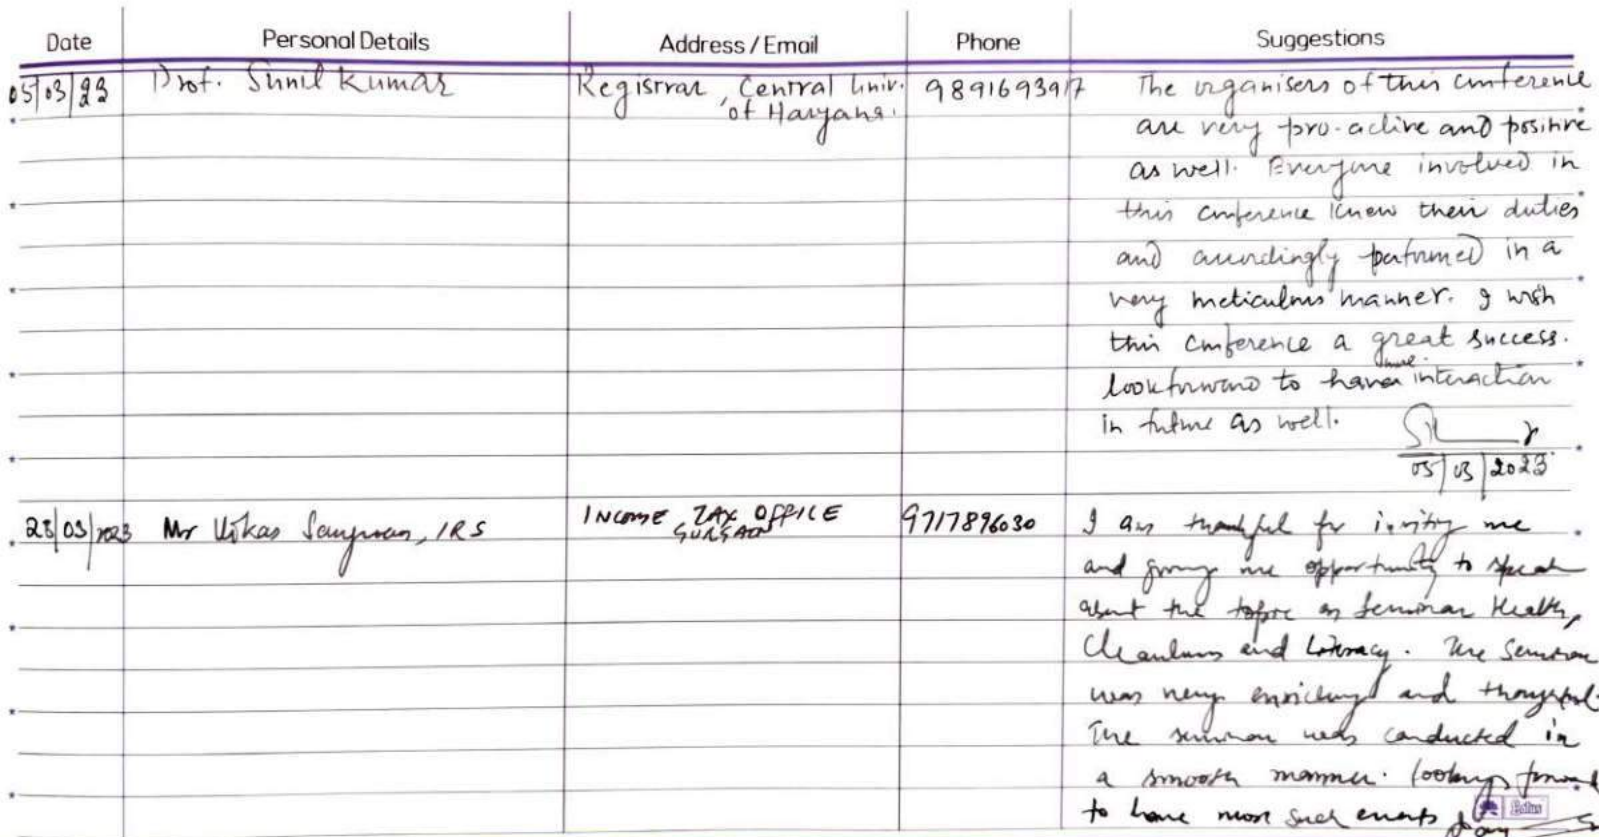 Date Personal Details Address / Email Phone Suggestions
05/03/23 Prof. Sunil Kumar Registrar, Central Univ. 9891693917 The organisers of this conference
of Haryana. are very pro-active and positive
as well. Everyone involved in
this conference knew their duties
and accordingly performed in a
very meticulous manner. I wish
this conference a great success.
look forward to have more interaction
in future as well.
05/03/2023
28/03/2023 Mr Vikas Sangwan, IRS INCOME TAX OFFICE 9717896030 I am thankful for inviting me
GURGAON
and giving me opportunity to speak
about the topic on Seminar Health,
Cleanliness and Literacy. The Seminar
was very enriching and thoughtful.
The seminar was conducted in
a smooth manner. looking forward
to have more such events